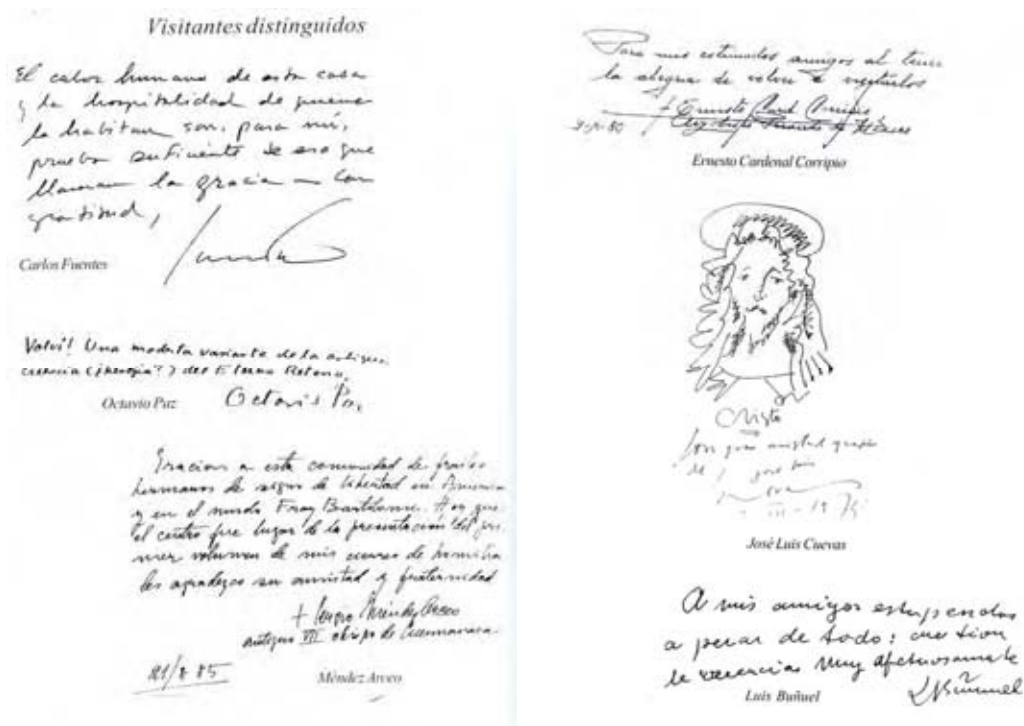 Visitantes distinguidos
El calor humano de esta casa
y la hospitalidad de quienes
la habitan son, para mí,
prueba suficiente de eso que
llaman la gracia — Con
gratitud,
Carlos Fuentes
Volví! Una modesta variante de la antigua
creencia (¿herejía?) del Eterno Retorno.
Octavio Paz
Octavio Paz
Gracias a esta comunidad de frailes
hermanos de signo de libertad en América
y en el mundo Fray Bartolomé. Hoy que
el centro fue lugar de la presentación del pri-
mer volumen de mis homilías
les agradezco su amistad y fraternidad
+ Sergio Méndez Arceo
antiguo VII obispo de Cuernavaca
21/8 85
Méndez Arceo
Para mis estimados amigos al tener
la alegría de volver a visitarlos
+ Ernesto Card Corripio
Ernesto Cardenal Corripio
Cristo
Con gran amistad
José Luis
Cuevas
José Luis Cuevas
A mis amigos estupendos
a pesar de todo:
muy afectuosamente
LBuñuel
Luis Buñuel